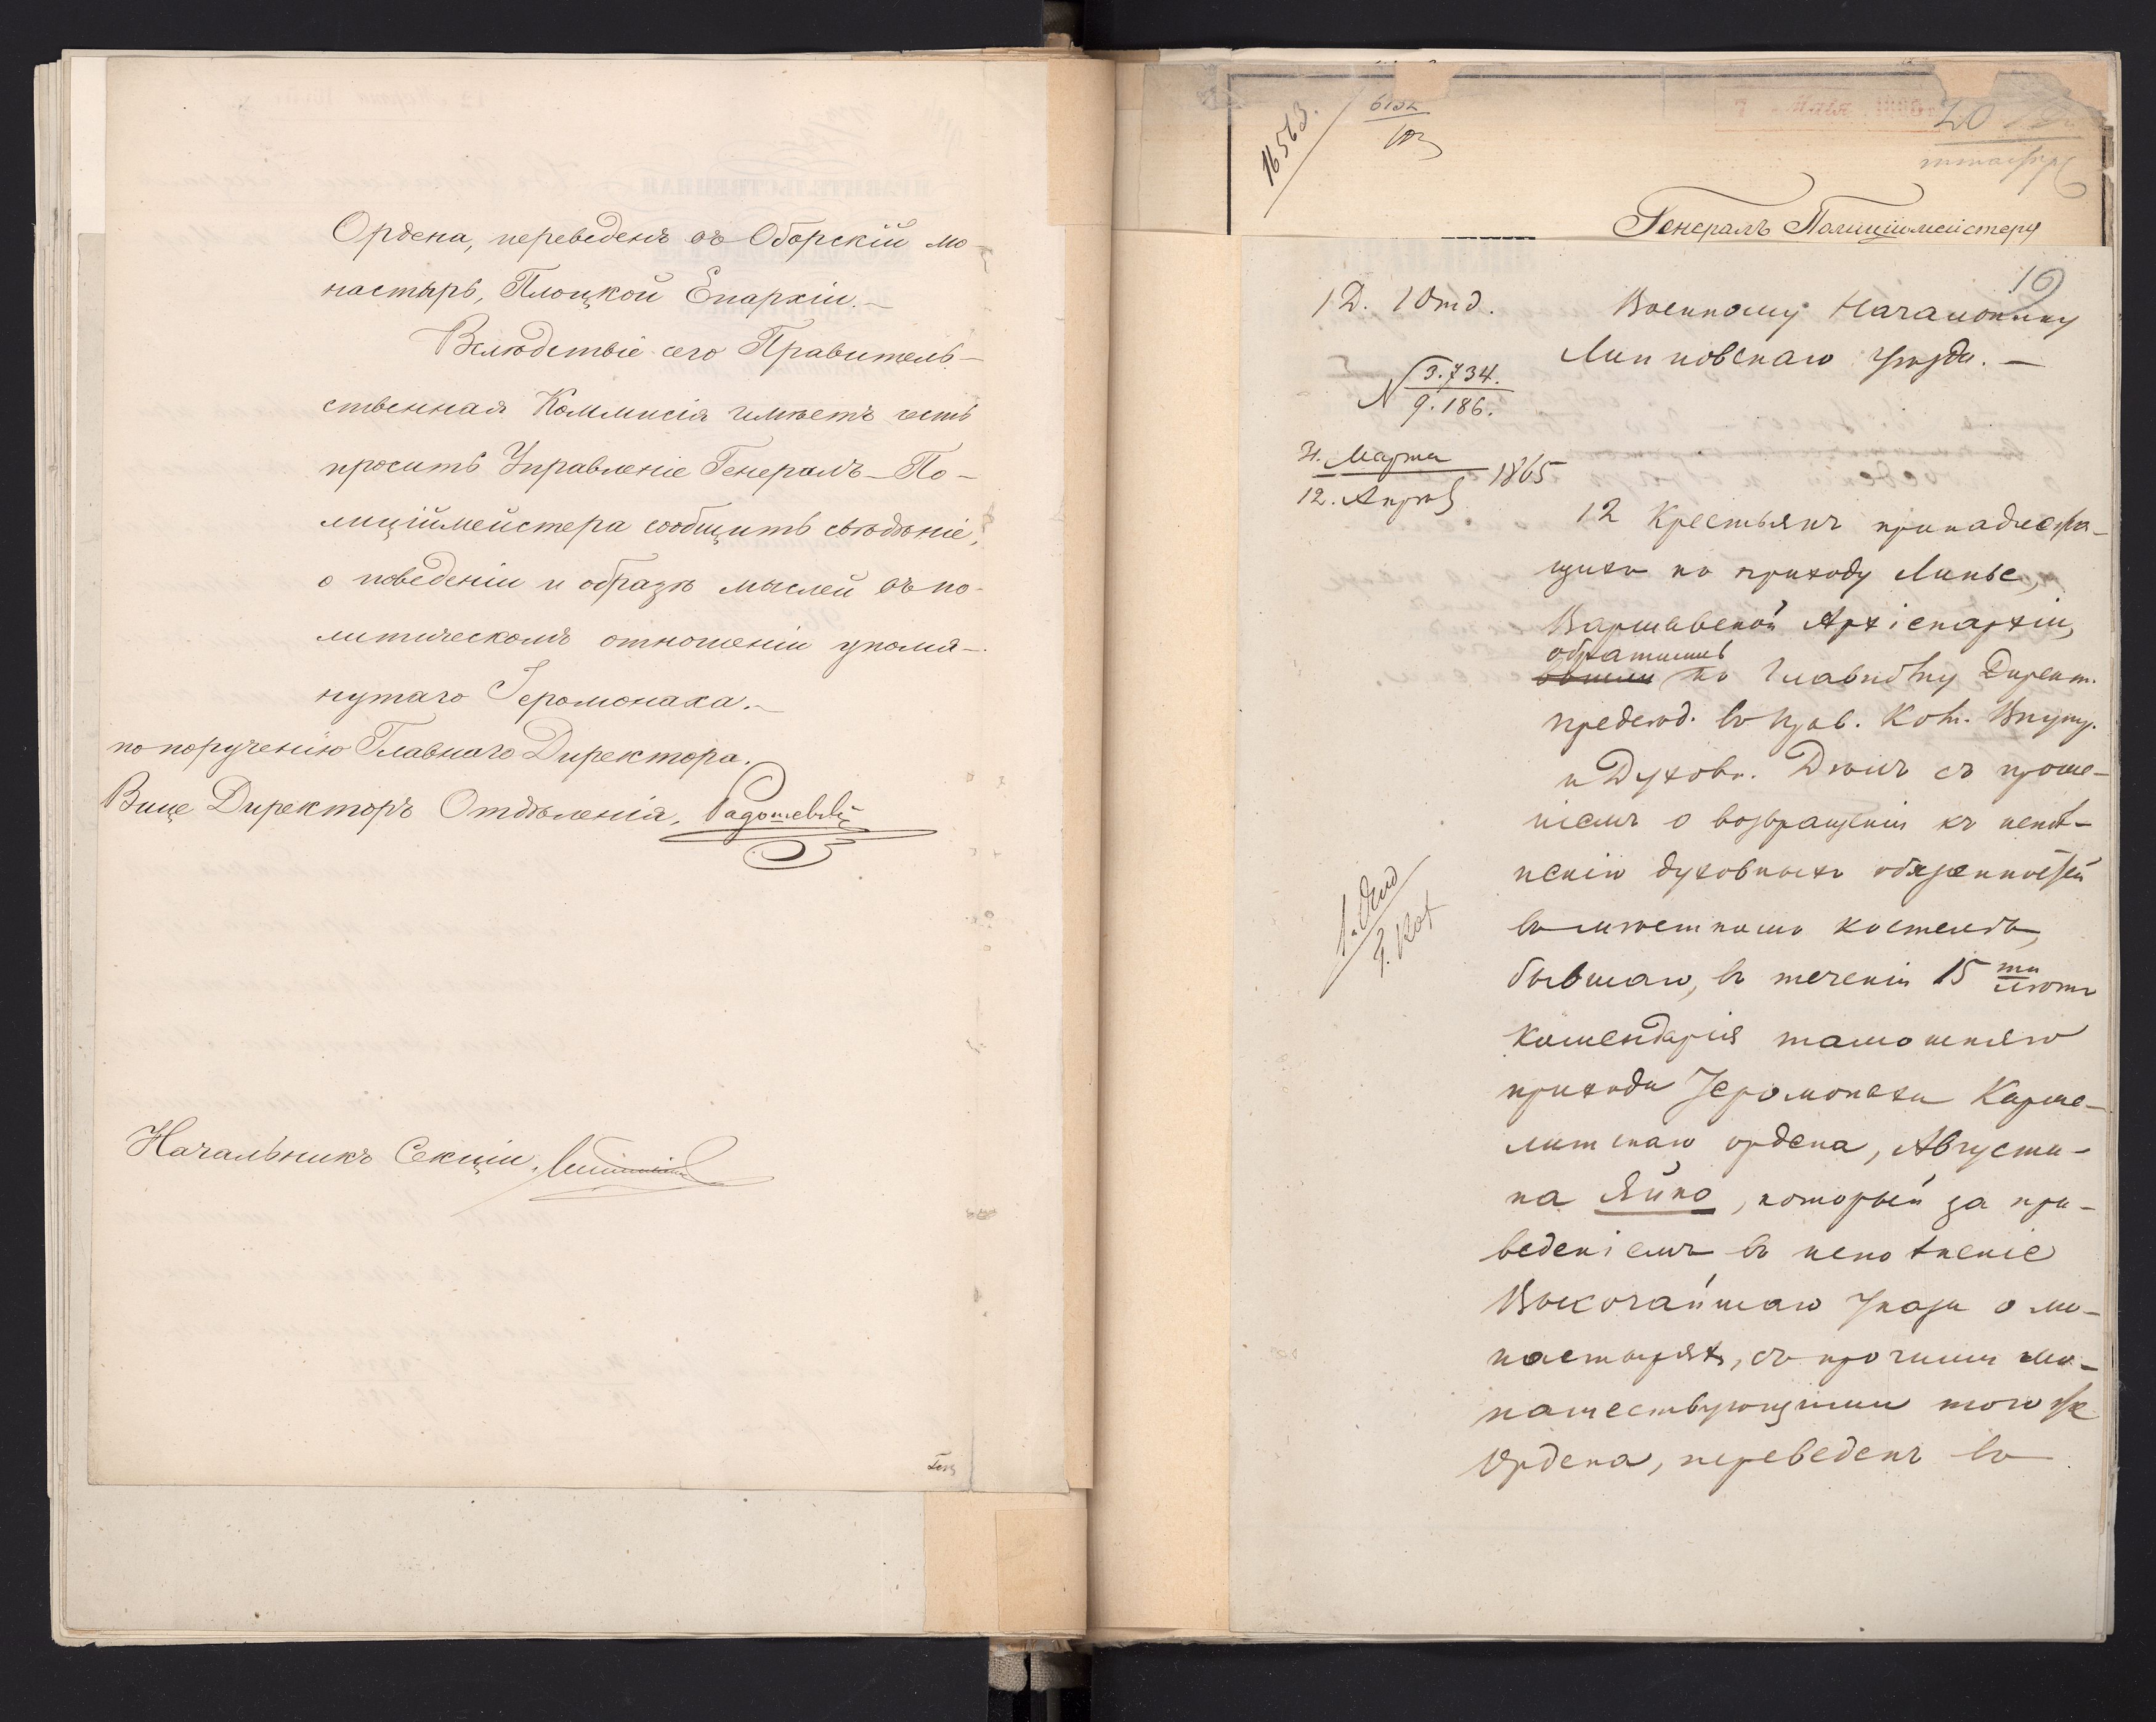 Ордена, переведенъ въ Оборскій мо-
настырь, Плоцкой Епархіи.—
Вслѣдствіе сего Правитель-
ственная Коммисія имѣетъ честь
просить Управленіе Генералъ-По-
лиціймейстера сообщить свѣдѣніе,
о поведеніи и образѣ мыслей въ по-
литическомъ отношеніи упомя-
нутаго Іеромонаха.—
по порученію Главнаго Директора.
Вице Директоръ Отдѣленія,
Начальникъ Секціи,
16563.
7 Мая
20
Генералъ Полиціймейстеру
19
1 Д. 1 Отд.
Военному Начальнику
Липновскаго уѣзда.—
N 3.734.
9.186.
31. Марта
12. Апрѣл 1865
12 Крестьянъ принадлежа-
щихъ къ приходу Липье,
Варшавской Архіепархіи,
обратились
къ Главному Директ.
предсѣд. въ Прав. Ком. Внутр.
и Духовн. Дѣлъ съ проше-
ніемъ о возвращеніи къ испол-
ненію духовныхъ обязанностей
въ мѣстномъ костелѣ,
бывшаго, въ теченіи 15 ти лѣтъ
комендарія тамошняго
прихода Іеромонаха Карме-
литскаго ордена, Августи-
на Яйко, который за при-
веденіемъ въ исполненіе
Высочайшаго Указа о мо-
настыряхъ, съ прочими мо-
нашествующими того же
Ордена, переведенъ въ